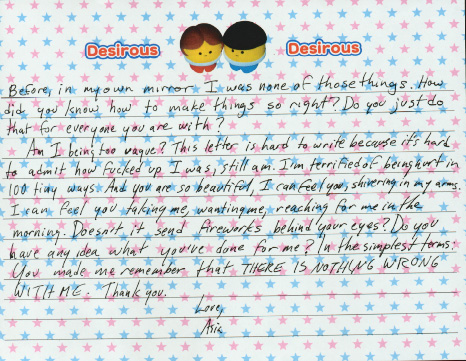 Desirous Desirous
Before, in my own mirror I was none of those things. How
did you know how to make things so right? Do you just do
that for everyone you are with?
Am I being too vague? This letter is hard to write because it's hard
to admit how fucked up I was, still am. I'm terrified of being hurt in
100 tiny ways. And you are so beautiful, I can feel you, shivering in my arms.
I can feel you taking me, wanting me, reaching for me in the
morning. Doesn't it send fireworks behind your eyes? Do you
have any idea what you've done for me? In the simplest terms:
You made me remember that THERE IS NOTHING WRONG
WITH ME. Thank you.
Love,
Asia